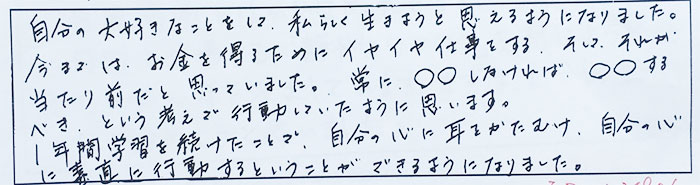 自分の大好きなことをして、私らしく生きようと思えるようになりました。
今までは、お金を得るためにイヤイヤ仕事をする、そして、それが
当たり前だと思っていました。常に、○○しなければ、○○する
べき、という考えで行動していたように思います。
1年間学習を続けたことで、自分の心に耳をかたむけ、自分の心
に素直に行動するということができるようになりました。